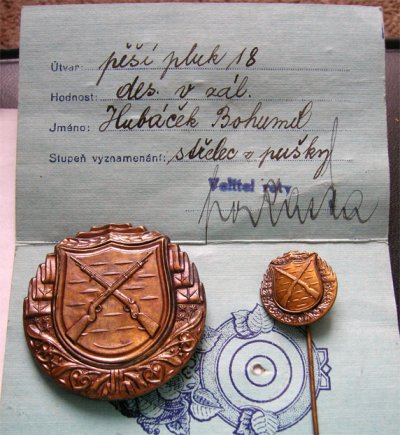 Útvar: pěší pluk 18
Hodnost: des. v zál.
Jméno: Hubáček Bohumil
Stupeň vyznamenání: střelec z pušky
Velitel roty